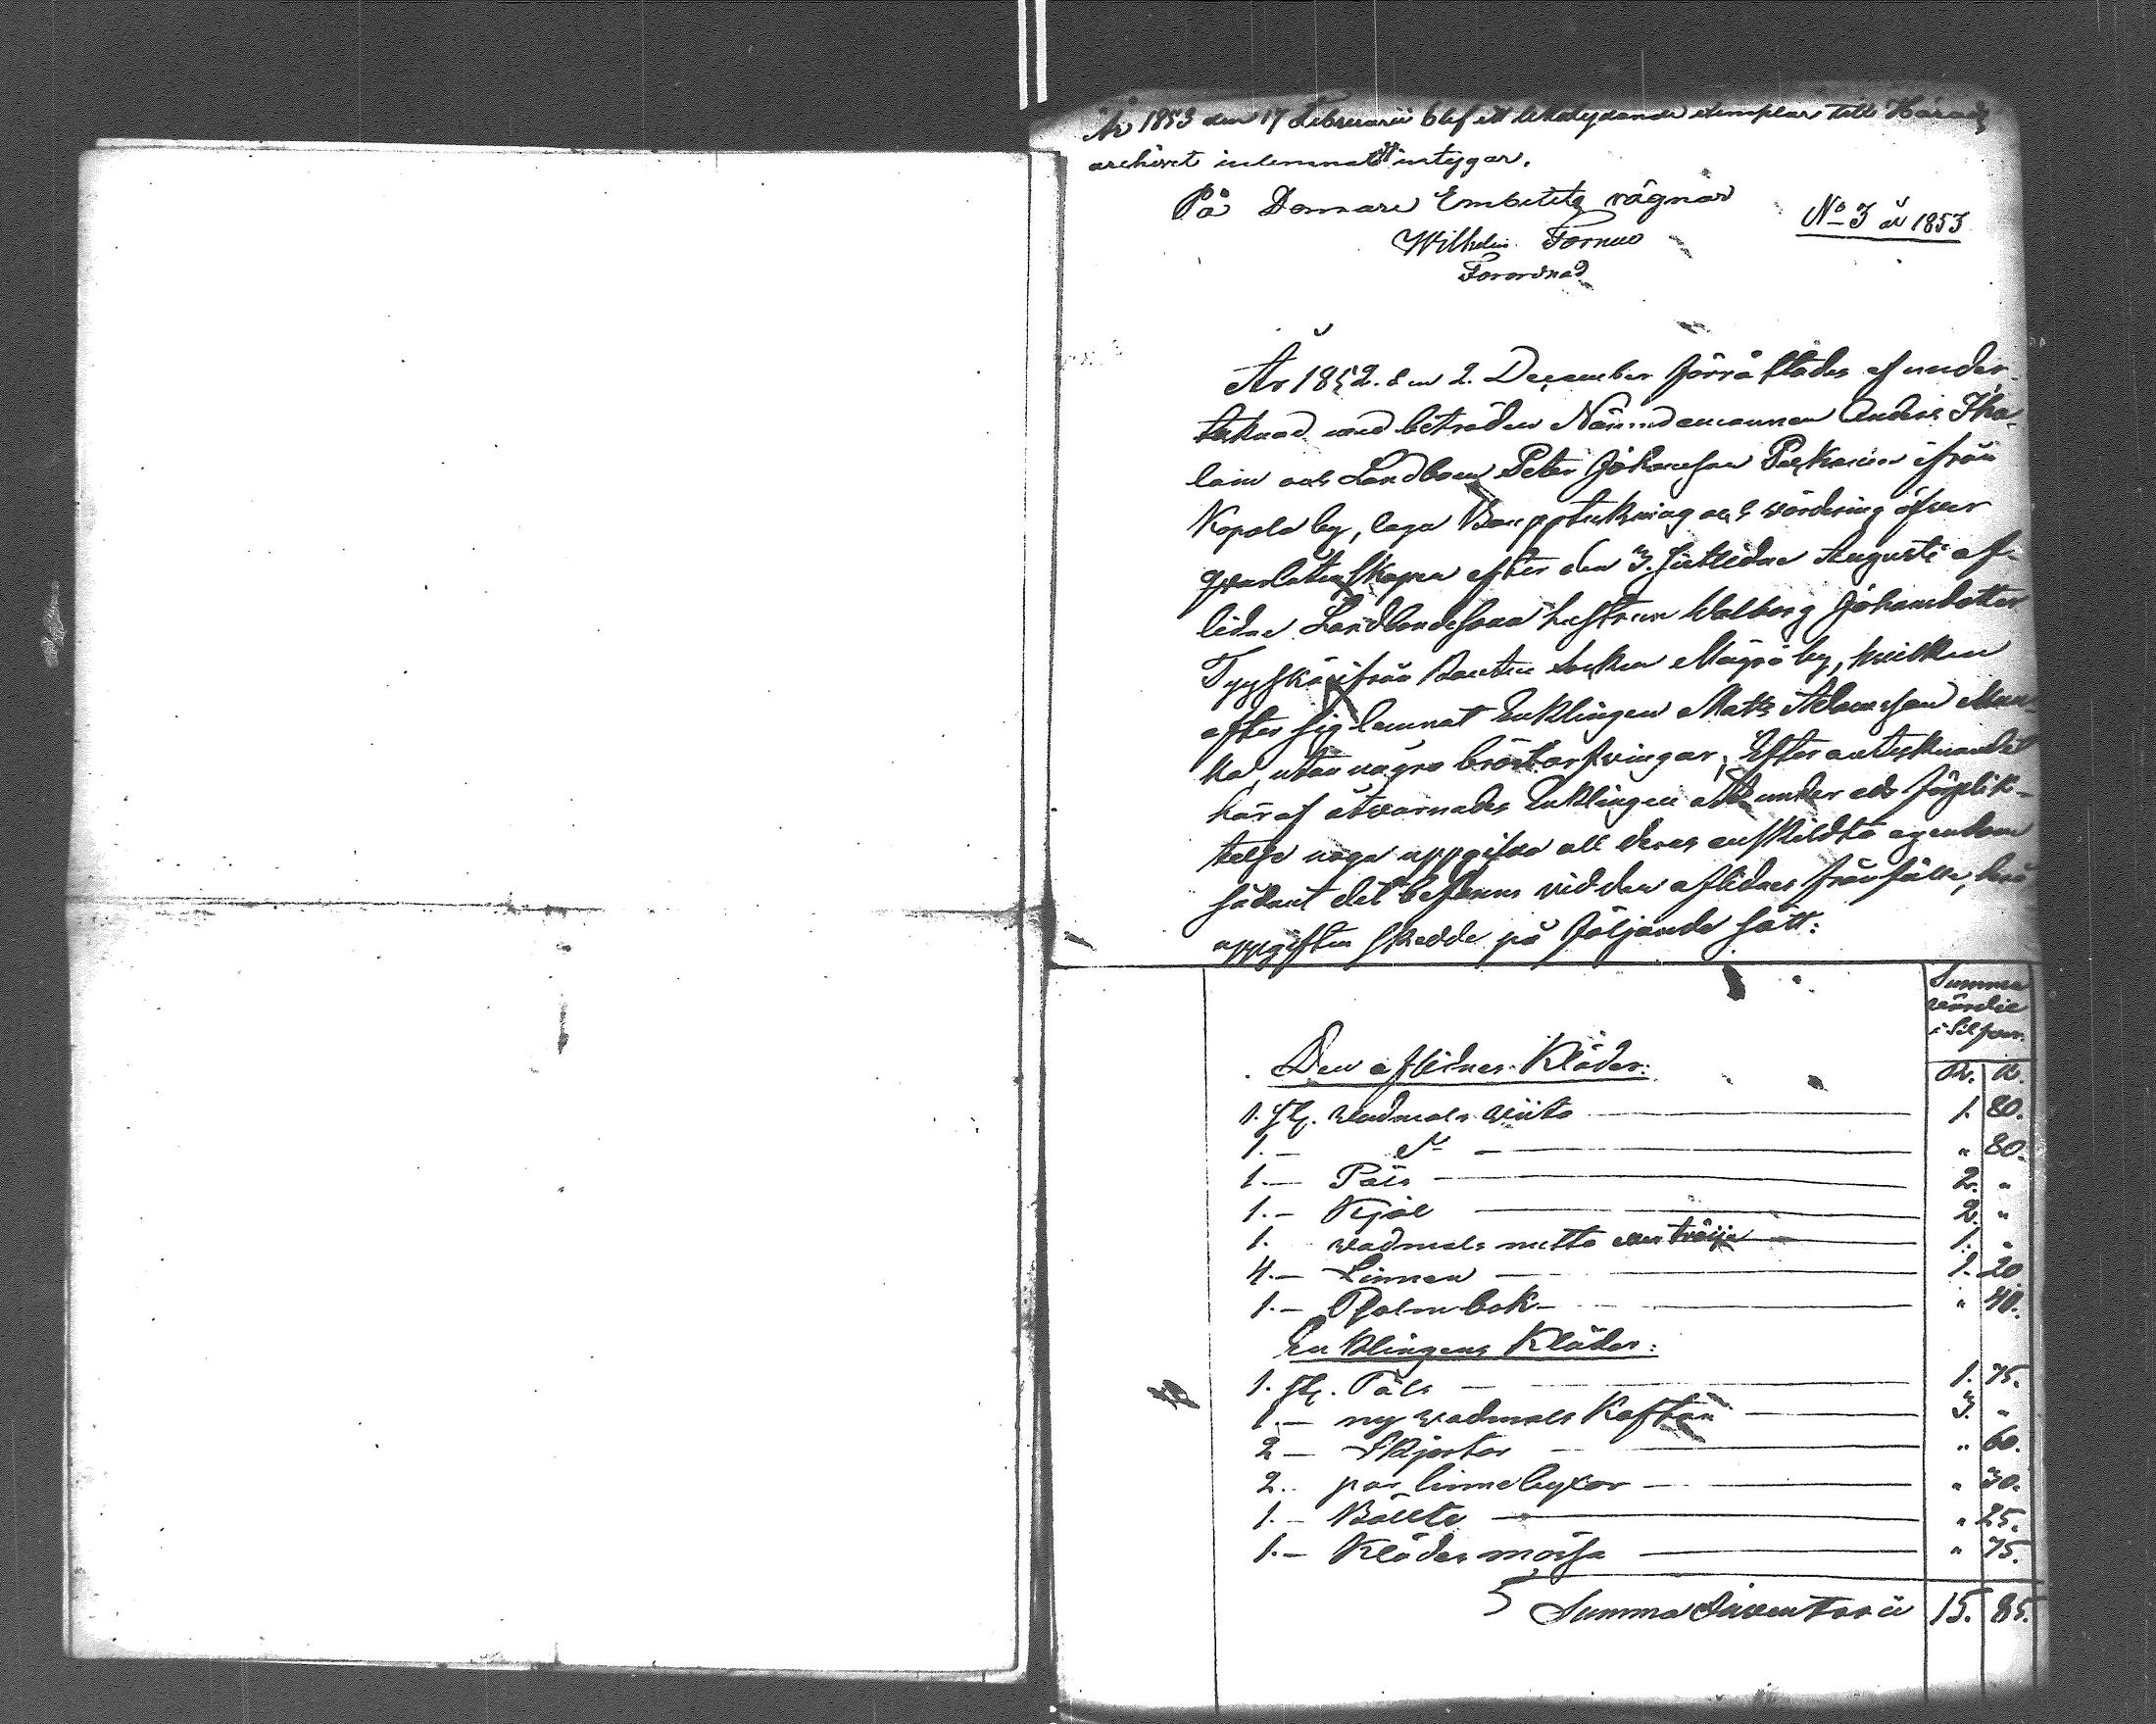 År 1853 den 17 Februarii blef ett liktalydande exemplar till Härads
archivet inlemnat intygar.
På Domare Embetets vägnar
Wilhelm Forneo
Förordnad
No 3 år 1853
År 1852. den 2. December förrättades af under-
teknad med biträden Nämndemannen Anders Iha-
lain och Landboen Peter Johansson ifrån
Kopola by, laga Bouppteckning och värdering öfver
qvarlåtenskapen efter den 3. sistledne Augusti af-
lidne Landbondesonns hustrun Walborg Johansdotter
ifrån socken by, hvilken
efter sig lemnat Enklingen Matts Adamsson Mun-
ka, utan några bröstarfvingar; Efter antecknandet
häraf åtvarnades Enklingen att under eds förplik-
telse noga uppgifva all deras enskildta egendom
sådant det befanns vid den aflidnes frånfälle, hvars
uppgiften skedde på följande sätt:
Summa
värdie
i Silfver.
Den aflidnes Kläder:
R. K.
1. st. wadmals wiita 1. 80.
1. — do — " 80.
1. — Päls 2. "
1. — Kjol 2. "
1. wadmals mutta tröija 1. "
4. — Linnen 1. 20
1. — Psalmbok " 40.
Enklingens Kläder:
1. st. Päls 1. 75.
1. — ny wadmals Kaftan 3. "
2 — Skjortor " 60.
2. par linnebyxor " 30.
1. — Bällte " 25.
1. — Klädesmössa " 75.
Summa Inventarii 15. 85.